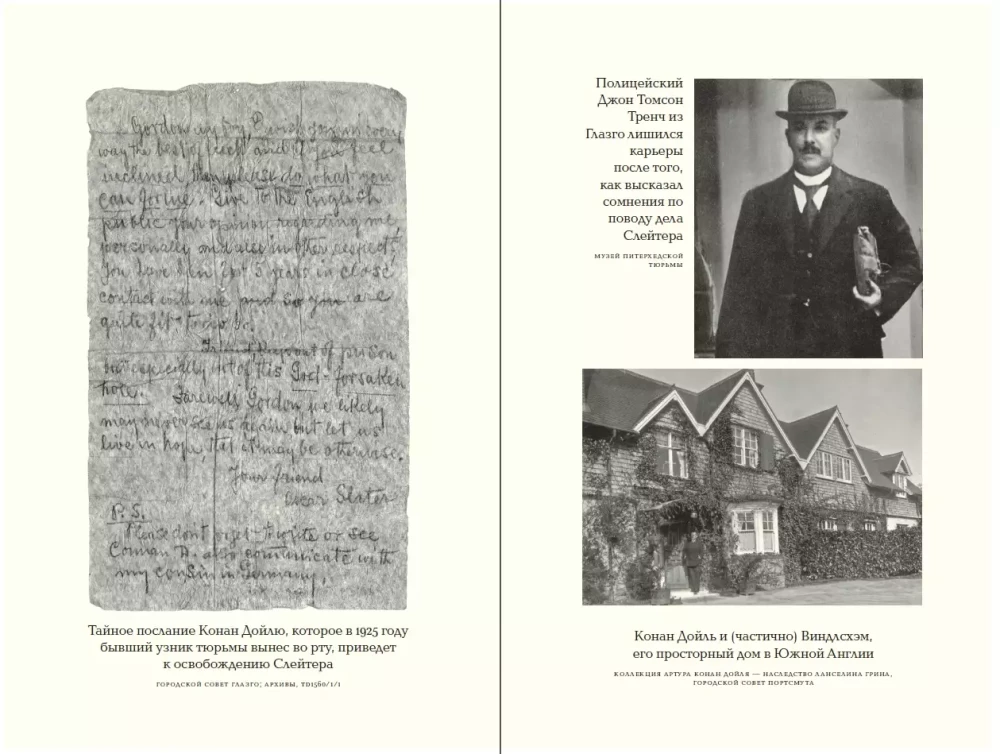 Gordon my boy, I wish you in every
way the best of luck and if you feel
inclined, then please do what you
can for me. Give to the English
public your opinion regarding me
personally and also in other respects
You have been for 5 years in close
contact with me and so you are
quite fit to do so.
Friend, keep out of prison
but especially out of this God-forsaken
hole. Farewell Gordon we likely
may never see us again but let us
live in hope, that it may be otherwise.
Your friend
Oscar Slater
P. S.
Please don't forget to write or see
Connan D. also communicate with
my cousin in Germany.
Тайное послание Конан Дойлю, которое в 1925 году
бывший узник тюрьмы вынес во рту, приведет
к освобождению Слейтера
ГОРОДСКОЙ СОВЕТ ГЛАЗГО; АРХИВЫ, TD1560/1/1
Полицейский
Джон Томсон
Тренч из
Глазго лишился
карьеры
после того,
как высказал
сомнения по
поводу дела
Слейтера
МУЗЕЙ ПИТЕРХЕДСКОЙ
ТЮРЬМЫ
Конан Дойль и (частично) Виндлсхэм,
его просторный дом в Южной Англии
КОЛЛЕКЦИЯ АРТУРА КОНАН ДОЙЛЯ — НАСЛЕДСТВО ЛАНСЕЛИНА ГРИНА,
ГОРОДСКОЙ СОВЕТ ПОРТСМУТА